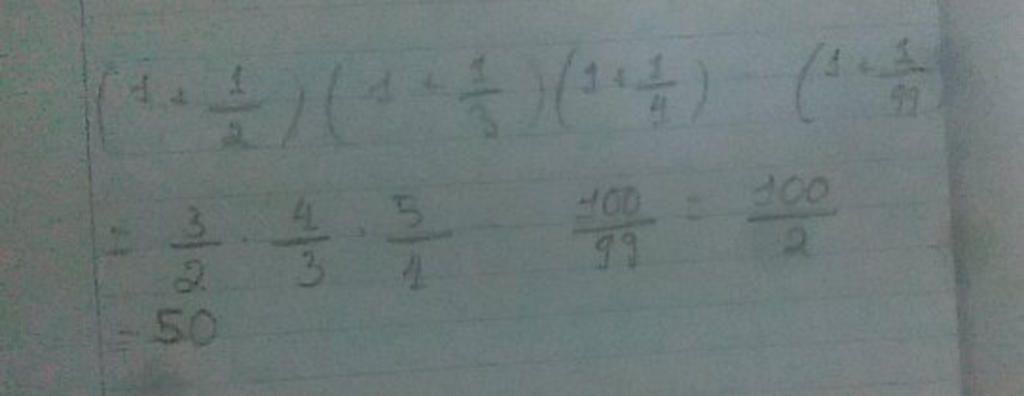 (1 + 1/2) (1 + 1/3) (1 + 1/4) (1 + 1/99)
= 3/2 · 4/3 · 5/4 100/99 = 100/2
= 50